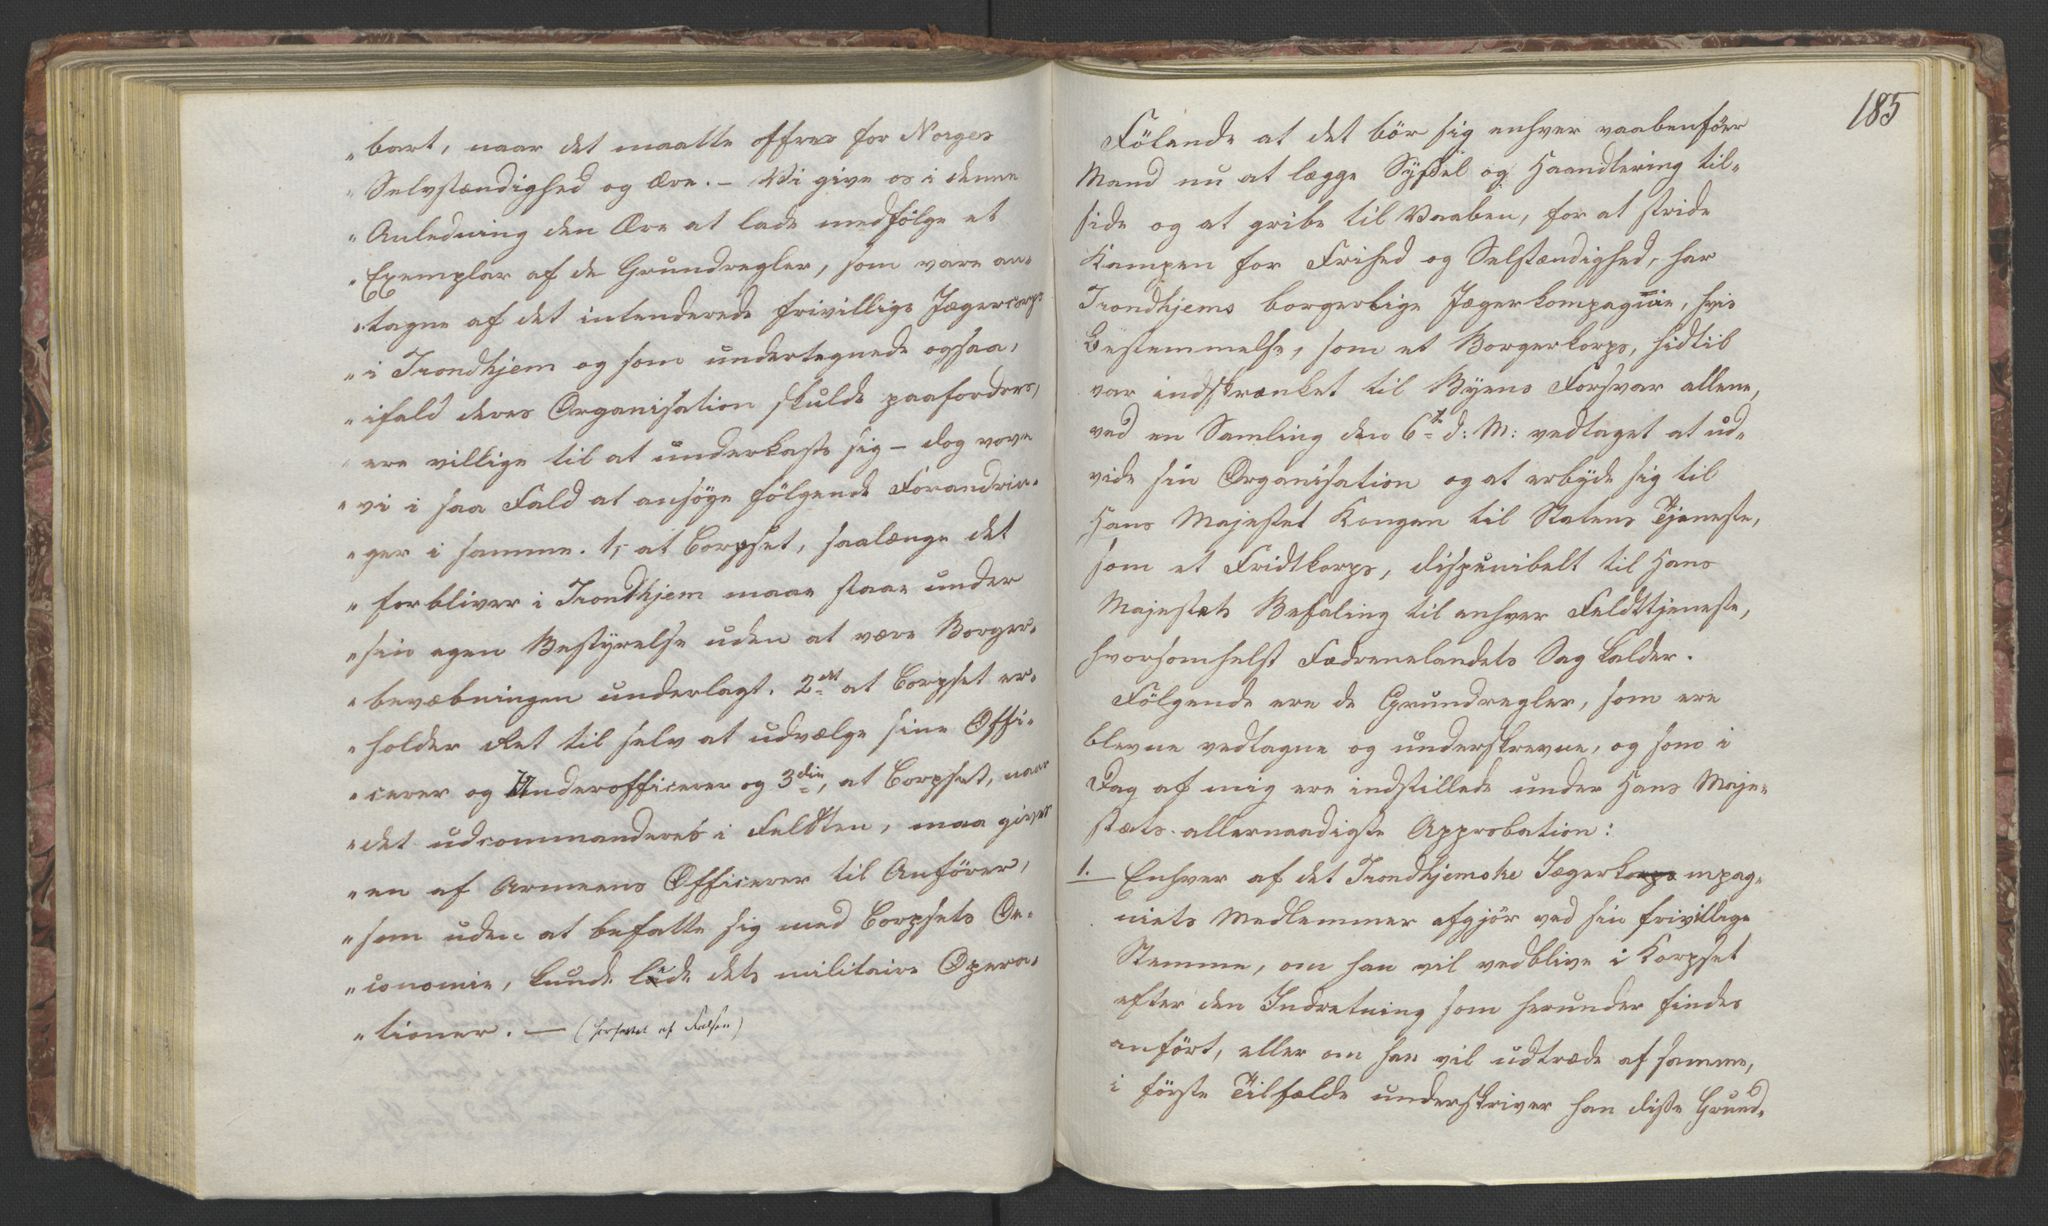 „ bart, naar det maatte offres for Norges
„ Selvstændighed og Ære. – Vi give os i denne
„ Anledning den Ære at lade medfølge et
„ Exemplar af de Grundregler, som vare an-
„ tagne af det intenderede frivillige Jægercorps
„ i Trondhjem og som undertegnede ogsaa,
„ ifald deres Organisation skulde paafordres,
„ ere villige til at underkaste sig – dog vove
„ vi i saa Fald at ansøge følgende Forandrin-
„ ger i samme. 1, at Corpset, saalænge det
„ forbliver i Trondhjem maae staae under
„ sin egen Bestyrelse uden at være Borger-
„ bevæbningen underlagt. 2et at Corpset er-
„ holder Ret til selv at udvælge sine Offi-
„ cerer og Underofficerer og 3die, at Corpset, naar
„ det udcommanderes i Feldten, maa gives
„ en af Armeens Officerer til Anfører,
„ som uden at befatte sig med Corpsets Oe-
„ conomie, kunde lede dets militaire Opera-
„ tioner. — (forfattet af Falsen)
185
Følende at det bör sig enhver vaabenför
Mand nu at lægge Syssel og Haandtering til-
side og at gribe til Vaaben, for at stride
Kampen for Frihed og Selstændighed, har
Trondhjems borgerlige Jægerkompagnie, hvis
Bestemmelse, som et Borgerkorps, hidtil
var indskrænket til Byens Forsvar allene,
ved en Samling den 6te d: M: vedtaget at ud-
vide sin Organisation og at erbyde sig til
Hans Majestet Kongen til Statens Tjeneste,
som et Fridtkorps, disponibelt til Hans
Majestets Befaling til enhver Feldttjeneste,
hvorsomhelst Fædrenelandets Sag kalder.
Følgende ere de Grundregler, som ere
blevne vedtagne og underskrevne, og som i
Dag af mig ere indstillede under Hans Maje-
stæts allernaadigste Approbation:
1. Enhver af det Trondhjemske Jægerkorps mpag-
niets Medlemmer afgjör ved sin frivillige
Stemme, om han vil vedblive i Korpset
efter den Indretning som herunder findes
anfört, eller om han vil udtræde af samme,
i förste Tilfælde underskriver han disse Grund-